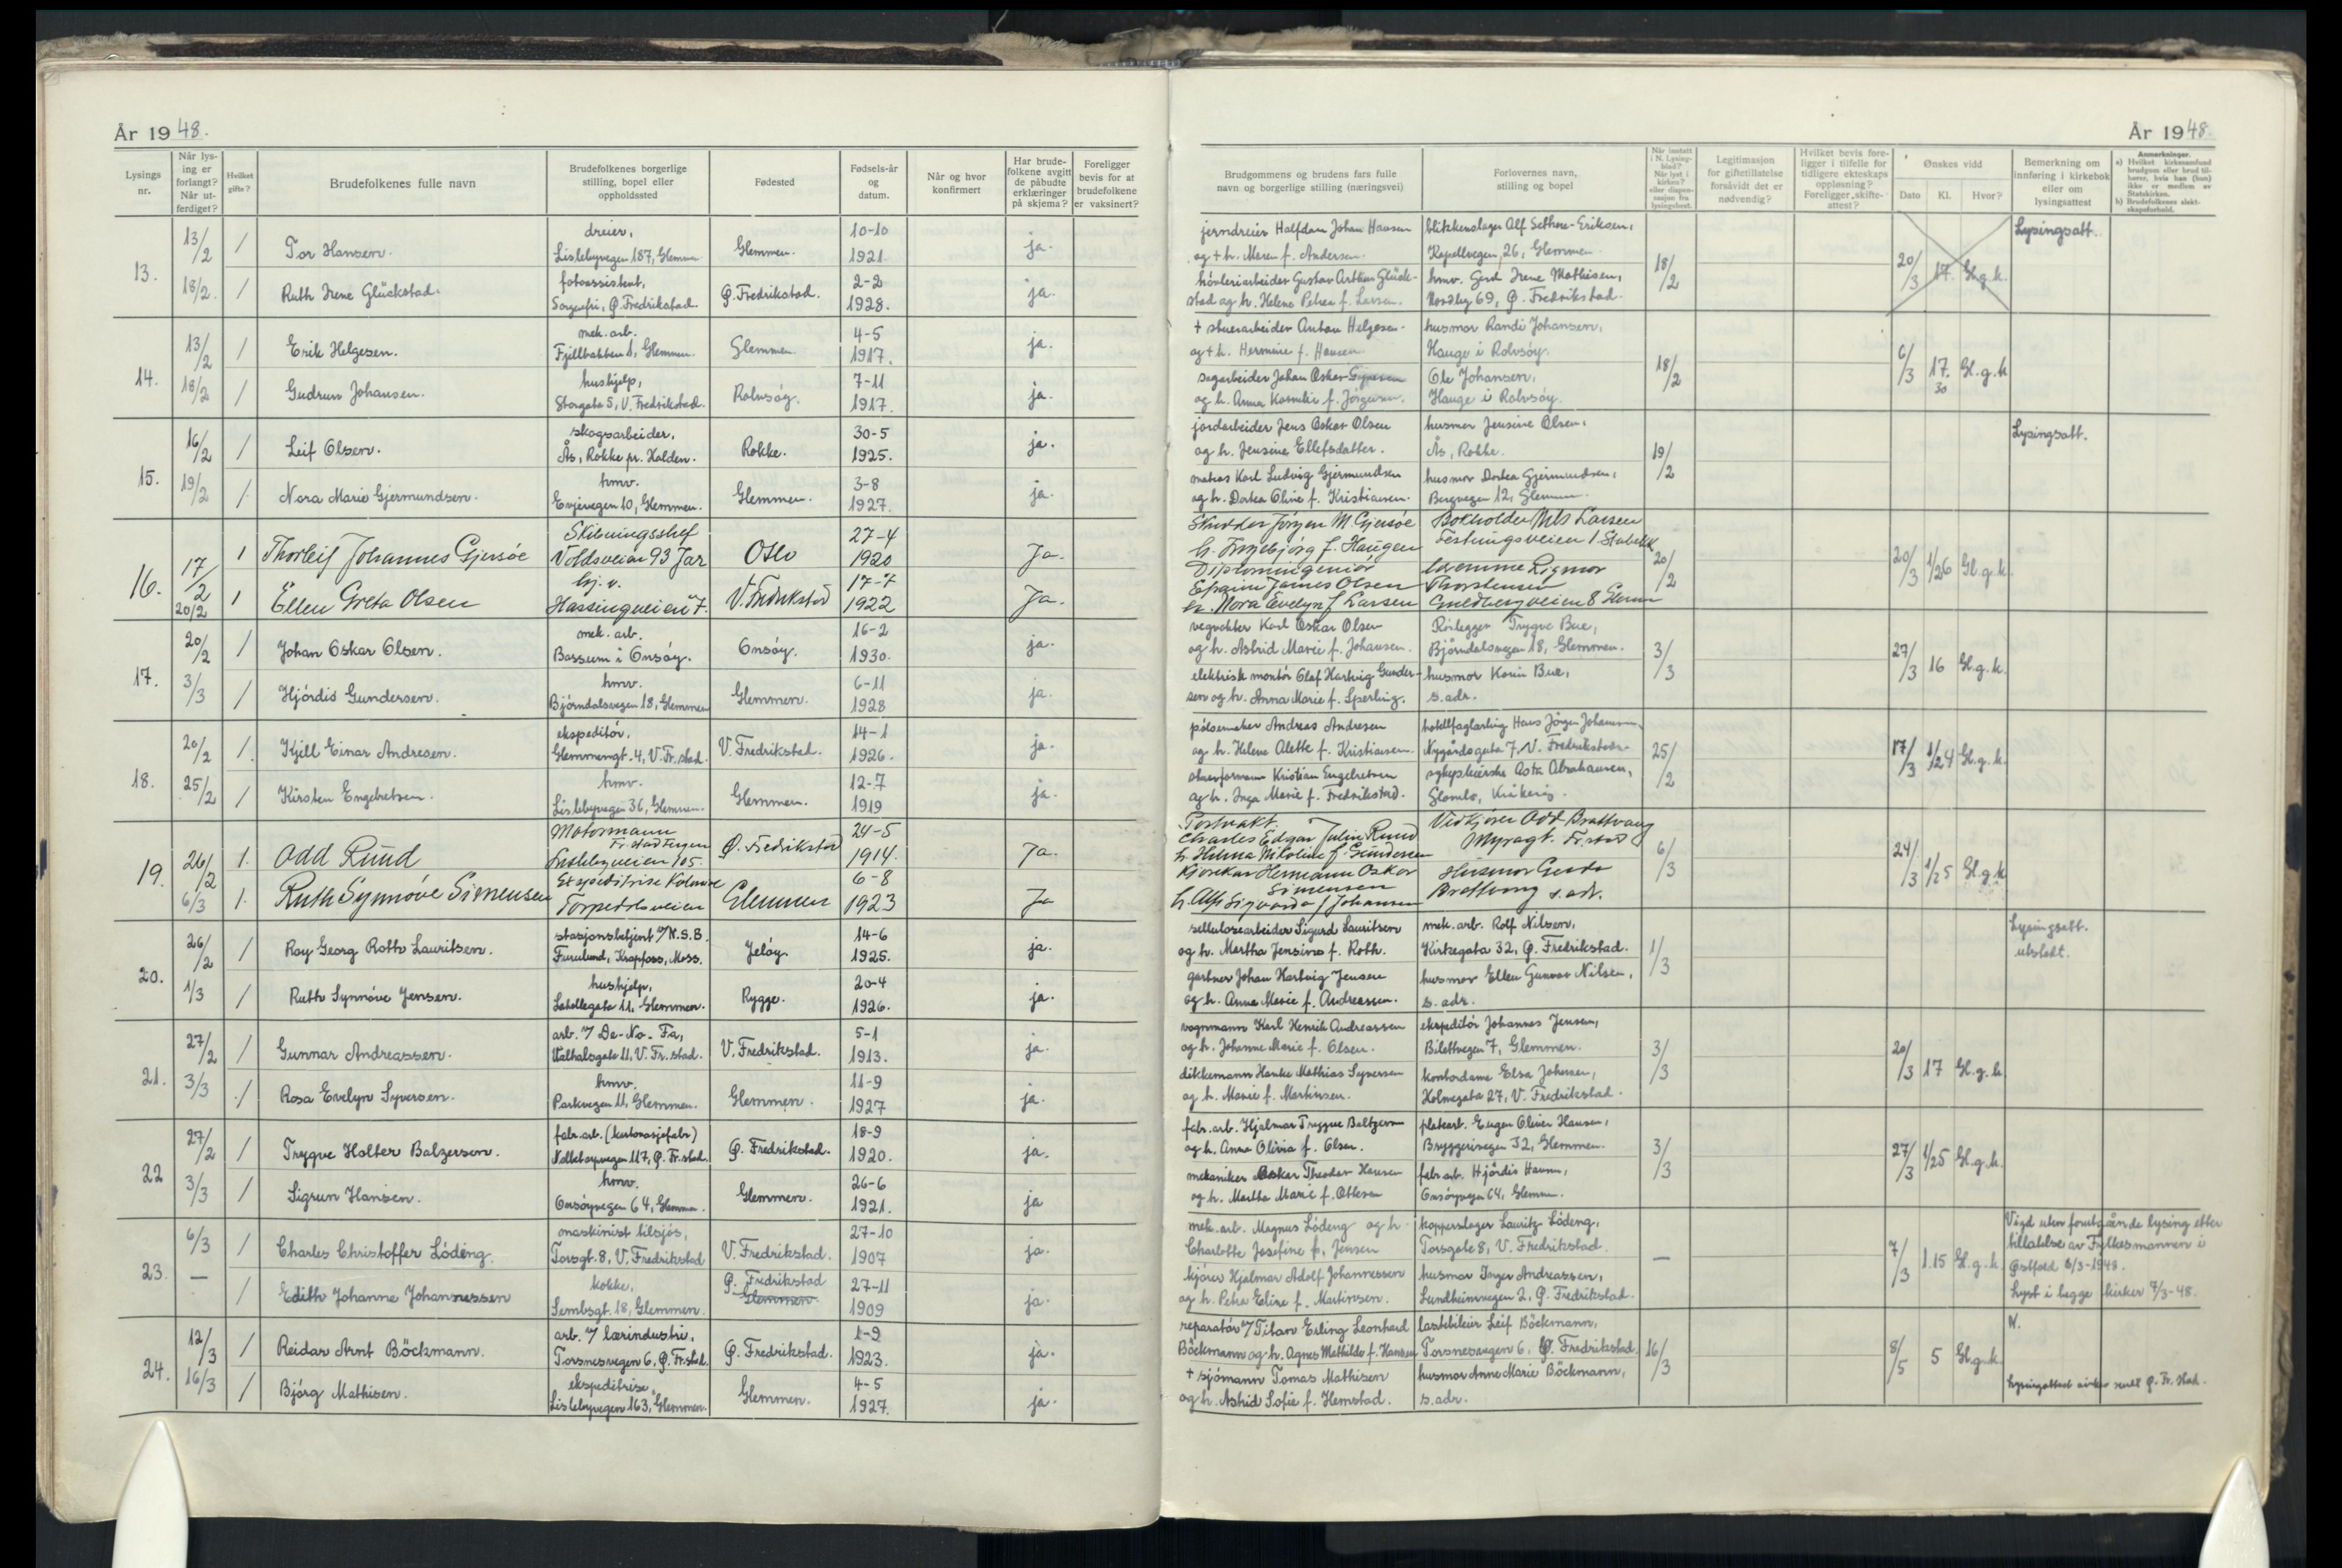 År 1948.
Lysings nr.
Når lysing er forlangt? Når utferdiget?
Hvilket gifte?
Brudefolkenes fulle navn
Brudefolkenes borgerlige stilling, bopel eller oppholdssted
Fødested
Fødsels-år og datum.
Når og hvor konfirmert
Har brudefolkene avgitt de påbudte erklæringer på skjema?
Foreligger bevis for at brudefolkene er vaksinert?
13. 13/2 1 Tor Hansen. dreier, Lislebyvegen 187, Glemmen Glemmen. 10-10 1921. ja.
18/2. 1 Ruth Irene Glückstad. fotoassistent, Sorgenfri, Ø. Fredrikstad. Ø. Fredrikstad. 2-2 1928. ja.
14. 13/2 1 Erik Helgesen. mek. arb. Fjellbakken 1, Glemmen. Glemmen 4-5 1917. ja.
18/2 1 Gudrun Johansen. hushjelp, Storgata 5, V. Fredrikstad. Rolvsøy. 7-11 1917. ja.
15. 16/2 1 Leif Olsen. skogsarbeider, Ås, Rokke pr. Halden. Rokke. 30-5 1925. ja.
19/2 1 Nora Marie Gjermundsen. hmv. Evjevegen 10, Glemmen. Glemmen. 3-8 1927. ja.
16. 17/2 1 Thorleif Johannes Gjersøe Voldsveien 93 Jar Oslo 27-4 1920 Ja.
20/2 1 Ellen Greta Olsen hj. v. Hassingveien 7. V. Fredrikstad 17-7 1922 Ja.
17. 20/2 1 Johan Oskar Olsen. mek. arb. Bossum i Onsøy. Onsøy. 16-2 1930. ja.
3/3 1 Hjördis Gundersen. hmv. Bjørndalsvegen 18, Glemmen Glemmen. 6-11 1928 ja.
18. 20/2 1. Kjell Einar Andresen. ekspeditör, Glemmengt. 4, V. Fr. stad. V. Fredrikstad. 14-1 1926. ja.
25/2 1 Kirsten Engebretsen. hmv. Lislebyvegen 36, Glemmen. Glemmen. 12-7 1919 ja.
19. 26/2 1. Odd Ruud Motormann Fr. stad Fergen Lislebyveien 105. Ø. Fredrikstad 24-5 1914. Ja.
6/3 1. Ruth Synnöve Simensen Torpedalsveien Glemmen 6-8 1923 Ja
20. 26/2 1 Roy Georg Roth Lauritsen. stasjonsbetjent v/N.S.B. Furulund, Krapfoss, Moss. Jeløy. 14-6 1925. ja.
1/3 1 Ruth Synnöve Jensen. hushjelp, Lakollegata 11, Glemmen. Rygge. 20-4 1926. ja.
21. 27/2 1 Gunnar Andreassen. arb. v/ De-No-Fa, Valhalsgate 11, V. Fr. stad. V. Fredrikstad. 5-1 1913. ja.
3/3 1 Rosa Evelyn Syversen. hmv. Parkvegen 11, Glemmen. Glemmen. 11-9 1927 ja.
22 27/2 1 Trygve Holter Balzersen. Ø. Fr. stad. Ø. Fredrikstad. 18-9 1920. ja.
3/3 1 Sigrun Hansen. hmv. Onsøyvegen 64, Glemmen. Glemmen. 26-6 1921. ja
23. 6/3 1 Charles Christoffer Lödeng. maskinist tilsjøs, Torsgt. 8, V. Fredrikstad V. Fredrikstad. 27-10 1907 ja.
— 1 Edith Johanne Johannessen kokke, Sembsgt. 18, Glemmen. Ø. Fredrikstad Glemmen. 27-11 1909 ja.
24. 12/3 1 Reidar Arnt Böckmann. arb. v/ lærindustri, Torsnesvegen 6, Ø. Fr. stad. Ø. Fredrikstad. 1-9 1923. ja.
16/3 1 Bjørg Mathisen. ekspeditrise, Lislebyvegen 163, Glemmen. Glemmen. 4-5 1927. ja.
År 1948.
Brudgommens og brudens fars fulle navn og borgerlige stilling (næringsvei)
Forlovernes navn, stilling og bopel
Når innsatt i N. Lysingsblad? Når lyst i kirken? eller dispensasjon fra lysingsbest.
Legitimasjon for giftetillatelse forsåvidt det er nødvendig?
Hvilket bevis foreligger i tilfelle for tidligere ekteskaps oppløsning? Foreligger skifteattest?
Ønskes vidd
Dato Kl. Hvor?
Bemerkning om innføring i kirkebok eller om lysingsattest
Anmerkninger. a) Hvilket kirkesamfund brudgom eller brud tilhører, hvis han (hun) ikke er medlem av Statskirken. b) Brudefolkenes slektskapsforhold.
jerndreier Halfdan Johan Hansen blikkenslager Alf Sethne-Eriksen, Lysingsatt.
og + h. Maren f. Andersen. Kapellvegen 26, Glemmen. 18/2 20/3 17. Gl.g.k.
Gustav Arthur Glück- hmv. Gerd Irene Mathisen,
stad og h. Helene Petrea f. Larsen. Nordbg 69, Ø. Fredrikstad.
+ stuerarbeider Anton Helgesen husmor Randi Johansen,
og + h. Hermine f. Hansen Hauge i Rolvsøy. 18/2 6/3 17.30 Gl.g.k
sagarbeider Johan Oskar Ole Johansen,
og h. Anna Kornelie f. Jørgensen. Hauge i Rolvsøy.
jordarbeider Jens Oskar Olsen husmor Jensine Olsen, Lysingsatt.
og h. Jensine Ellefsdatter. Ås, Rokke. 19/2
matros Karl Ludvig Gjermundsen husmor Dortea Gjermundsen,
og h. Dortea Oline f. Kristiansen. Bergvegen 12, Glemmen.
Skredder Jörgen M. Gjersøe Bokholder Nils Larsen
h. Ingebjørg f. Haugen Festningsveien 1 Stabekk 20/2 20/3 1/26 Gl.g.k.
Diplomingeniør Rigmor
James Olsen Thorstensen
h. Nora Evelyn f Larsen Guldbergveien 8 Glemm
vegvokter Karl Oskar Olsen Rörlegger Trygve Bue,
og h. Astrid Marie f. Johansen. Bjørndalsvegen 18, Glemmen. 3/3 27/3 16 Gl.g.k.
elektrisk montör Olaf Hartvig Gunder- husmor Karin Bue,
sen og h. Anna Marie f. Sperling. s. adr.
pølsemaker Andreas Andresen hotellfaglærling Hans Jörgen Johansen,
og h. Helene Alette f. Kristiansen. Nygårdsgata 7, V. Fredrikstad. 25/2 17/3 1/24 Gl.g.k.
Kristian Engebretsen sykepleierske Asta Abrahamsen,
og h. Inga Marie f. Fredrikstad. Glombo, Kråkerøy.
Postvakt. Odd Brattvang
Charles Edgar Julin Ruud Myragt. Fr.stad
h. Helma Nikoline f. Gundersen 6/3 24/3 1/25 Gl.g.k
Kjørekar Hermann Oskar Husmor Gerda
Simensen Brattvang s. adr.
h. Alfa Sigvarda f Johansen
sellulosearbeider Sigurd Lauritsen mek. arb. Rolf Nilsen, Lysingsatt.
og h. Martha Jensine f. Roth. Kirkegata 32, Ø. Fredrikstad. 1/3 utstedt.
gartner Johan Hartvig Jensen husmor Ellen Gunvor Nilsen,
og h. Anna Marie f. Andreassen. s. adr.
vognmann Karl Henrik Andreassen ekspeditör Johannes Jensen,
og h. Johanne Marie f. Olsen. Bilettvegen 7, Glemmen. 3/3 20/3 17 Gl.g.k
Mathias Syversen kontordame Elsa Johansen,
og h. Marie f. Martinsen. Holmegata 27, V. Fredrikstad.
fabr. arb. Hjalmar Trygve Baltzersen platearb. Eugen Oliver Hansen,
og h. Anna Olivia f. Olsen. Bryggerivegen 32, Glemmen. 3/3 27/3 1/25 Gl.g.k.
mekaniker Oskar Theodor Hansen fabr. arb. Hjördis Hansen,
og h. Martha Marie f. Ottesen Onsøyvegen 64, Glemmen.
mek. arb. Magnus Lödeng og h. kopperslager Lauritz Lödeng, Vigd uten forutgående lysing etter
Charlotte Josefine f. Jensen Torsgate 8, V. Fredrikstad. — 7/3 1.15 Gl.g.k. tillatelse av Fylkesmannen i
kjører Hjalmar Adolf Johannessen husmor Inger Andreassen, Østfold 6/3-1948.
og h. Petra Eline f. Martinsen. Lundheimvegen 2, Ø. Fredrikstad. Lyst i begge kirker 7/3-48.
reparatör v/Titan Erling Leonhard lastebileier Leif Böckmann, N.
Böckmann og h. Agnes Mathilde f. Hansen Torsnesvegen 6, Ø. Fredrikstad. 16/3 8/5 5 Gl.g.k.
+ sjömann Tomas Mathisen husmor Anne Marie Böckmann,
og h. Astrid Sofie f. Hemstad. s. adr. Lysingsattest sendt Ø. Fr. stad.